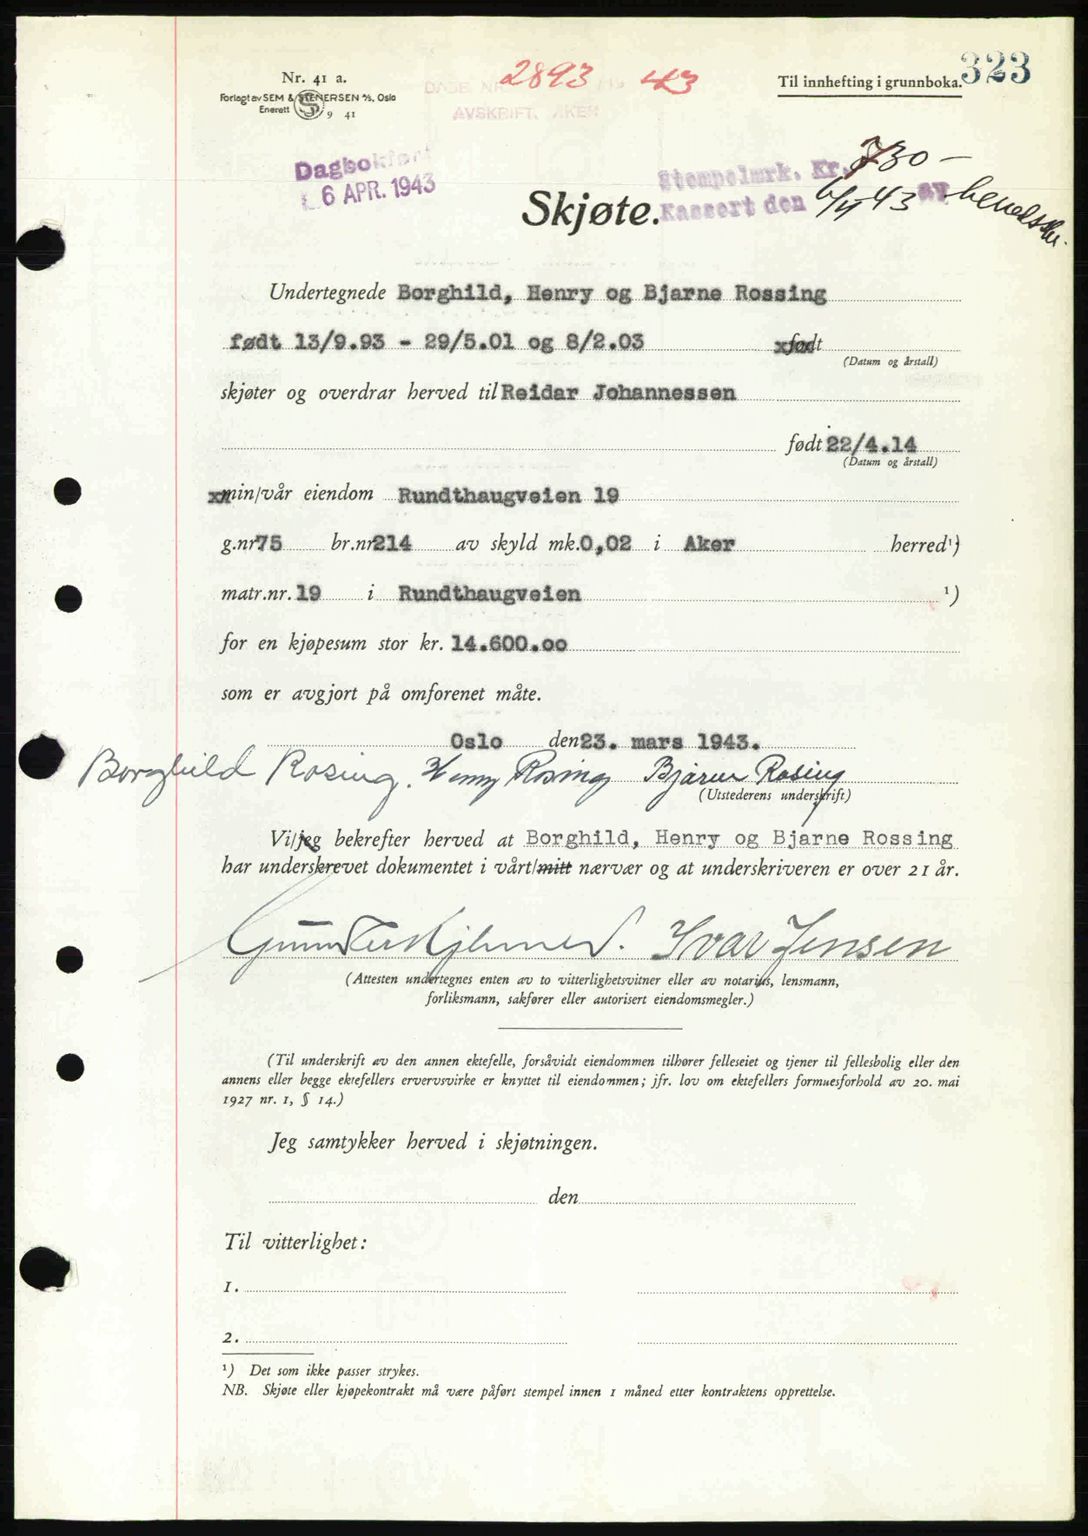 323
Nr. 41 a.
Forlagt av SEM & STENERSEN A/S, Oslo
Enerett 9 41
DAGB. NR. 2893 19 43
AVSKRIFT. AKER
Til innhefting i grunnboka.
Dagbokført
6 APR. 1943
Stempelmrk. Kr. 730 —
Kassert den 43 av
Skjøte.
Undertegnede Borghild, Henry og Bjarne Rossing
født 13/9.93 - 29/5.01 og 8/2.03 xfødt
(Datum og årstall)
skjøter og overdrar herved til Reidar Johannessen
født 22/4.14
(Datum og årstall)
min/vår eiendom Rundthaugveien 19
g.nr 75 br.nr 214 av skyld mk. 0,02 i Aker herred¹)
matr.nr. 19 i Rundthaugveien ¹)
for en kjøpesum stor kr. 14.600.oo
som er avgjort på omforenet måte.
Oslo den 23. mars 1943.
Borghild Rosing. Henry Rosing Bjarne Rosing
(Utstederens underskrift)
Vi/jeg bekrefter herved at Borghild, Henry og Bjarne Rossing
har underskrevet dokumentet i vårt/mitt nærvær og at underskriveren er over 21 år.
Ivar Jensen
(Attesten undertegnes enten av to vitterlighetsvitner eller av notarius, lensmann,
forliksmann, sakfører eller autorisert eiendomsmegler.)
(Til underskrift av den annen ektefelle, forsåvidt eiendommen tilhører felleseiet og tjener til fellesbolig eller den
annens eller begge ektefellers ervervsvirke er knyttet til eiendommen; jfr. lov om ektefellers formuesforhold av 20. mai
1927 nr. 1, § 14.)
Jeg samtykker herved i skjøtningen.
den
Til vitterlighet:
1.
2.
¹) Det som ikke passer strykes.
NB. Skjøte eller kjøpekontrakt må være påført stempel innen 1 måned etter kontraktens opprettelse.